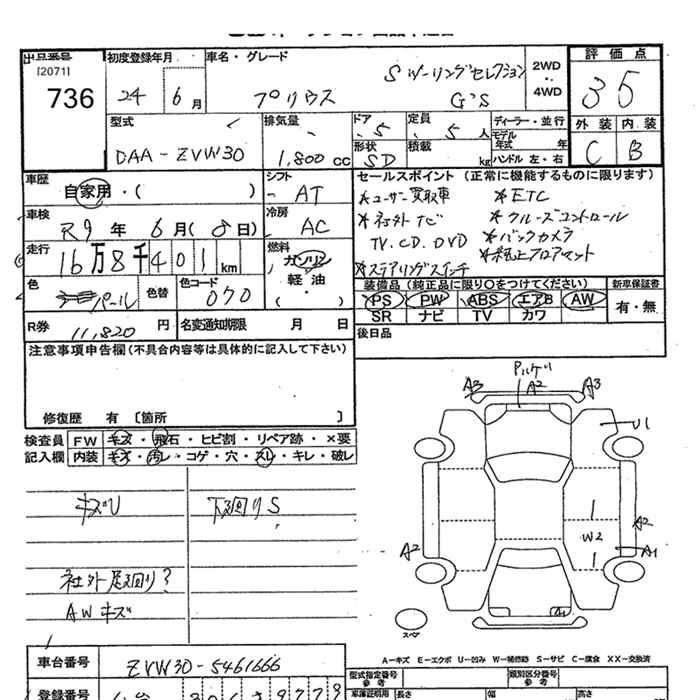 出品番号
[2071]
736
初度登録年月
24 6月
車名・グレード
プリウス
Sツーリングセレクション
G's
2WD
・・
4WD
評価点
35
型式
DAA-ZVW30
排気量
1,800cc
ドア
5
形状
SD
定員
5人
積載
kg
ディーラー・並行
モデル
年式 年
ハンドル 左・右
外装 内装
C B
車歴
自家用・( )
シフト
AT
車検
R9年 6月(8日)
冷房
AC
走行
16万8千401km
燃料
ガソリン
軽油
・( )
色
パール
色替
色コード
070
R券
11,820円
名変通知期限 月 日
セールスポイント (正常に機能するものに限ります)
*ユーザー買取車 *ETC
*社外ナビ *クルーズコントロール
TV.CD.DVD *バックカメラ
*ステアリングスイッチ *純正フロアマット
装備品(純正品に限り○をつけてください)
PS PW ABS エアB AW
SR ナビ TV カワ
新車保証書
有・無
後日品
注意事項申告欄(不具合内容等は具体的に記入して下さい)
修復歴 有 〔箇所 〕
検査員 FW キズ・飛石・ヒビ割・リペア跡・×要
記入欄 内装 キズ・汚レ・コゲ・穴・スレ・キレ・破レ
キズU
下廻りS
社外足廻り?
AWキズ
A3 A2 A3
U1
A2
W2
A2
A1
A1
スペア
A-キズ E-エクボ U-凹み W-補修跡 S-サビ C-腐食 XX-交換済
車台番号
ZVW30-5461666
登録番号
型式指定番号
参考
類別区分番号
参考
車庫証明用
長さ 幅 高さ